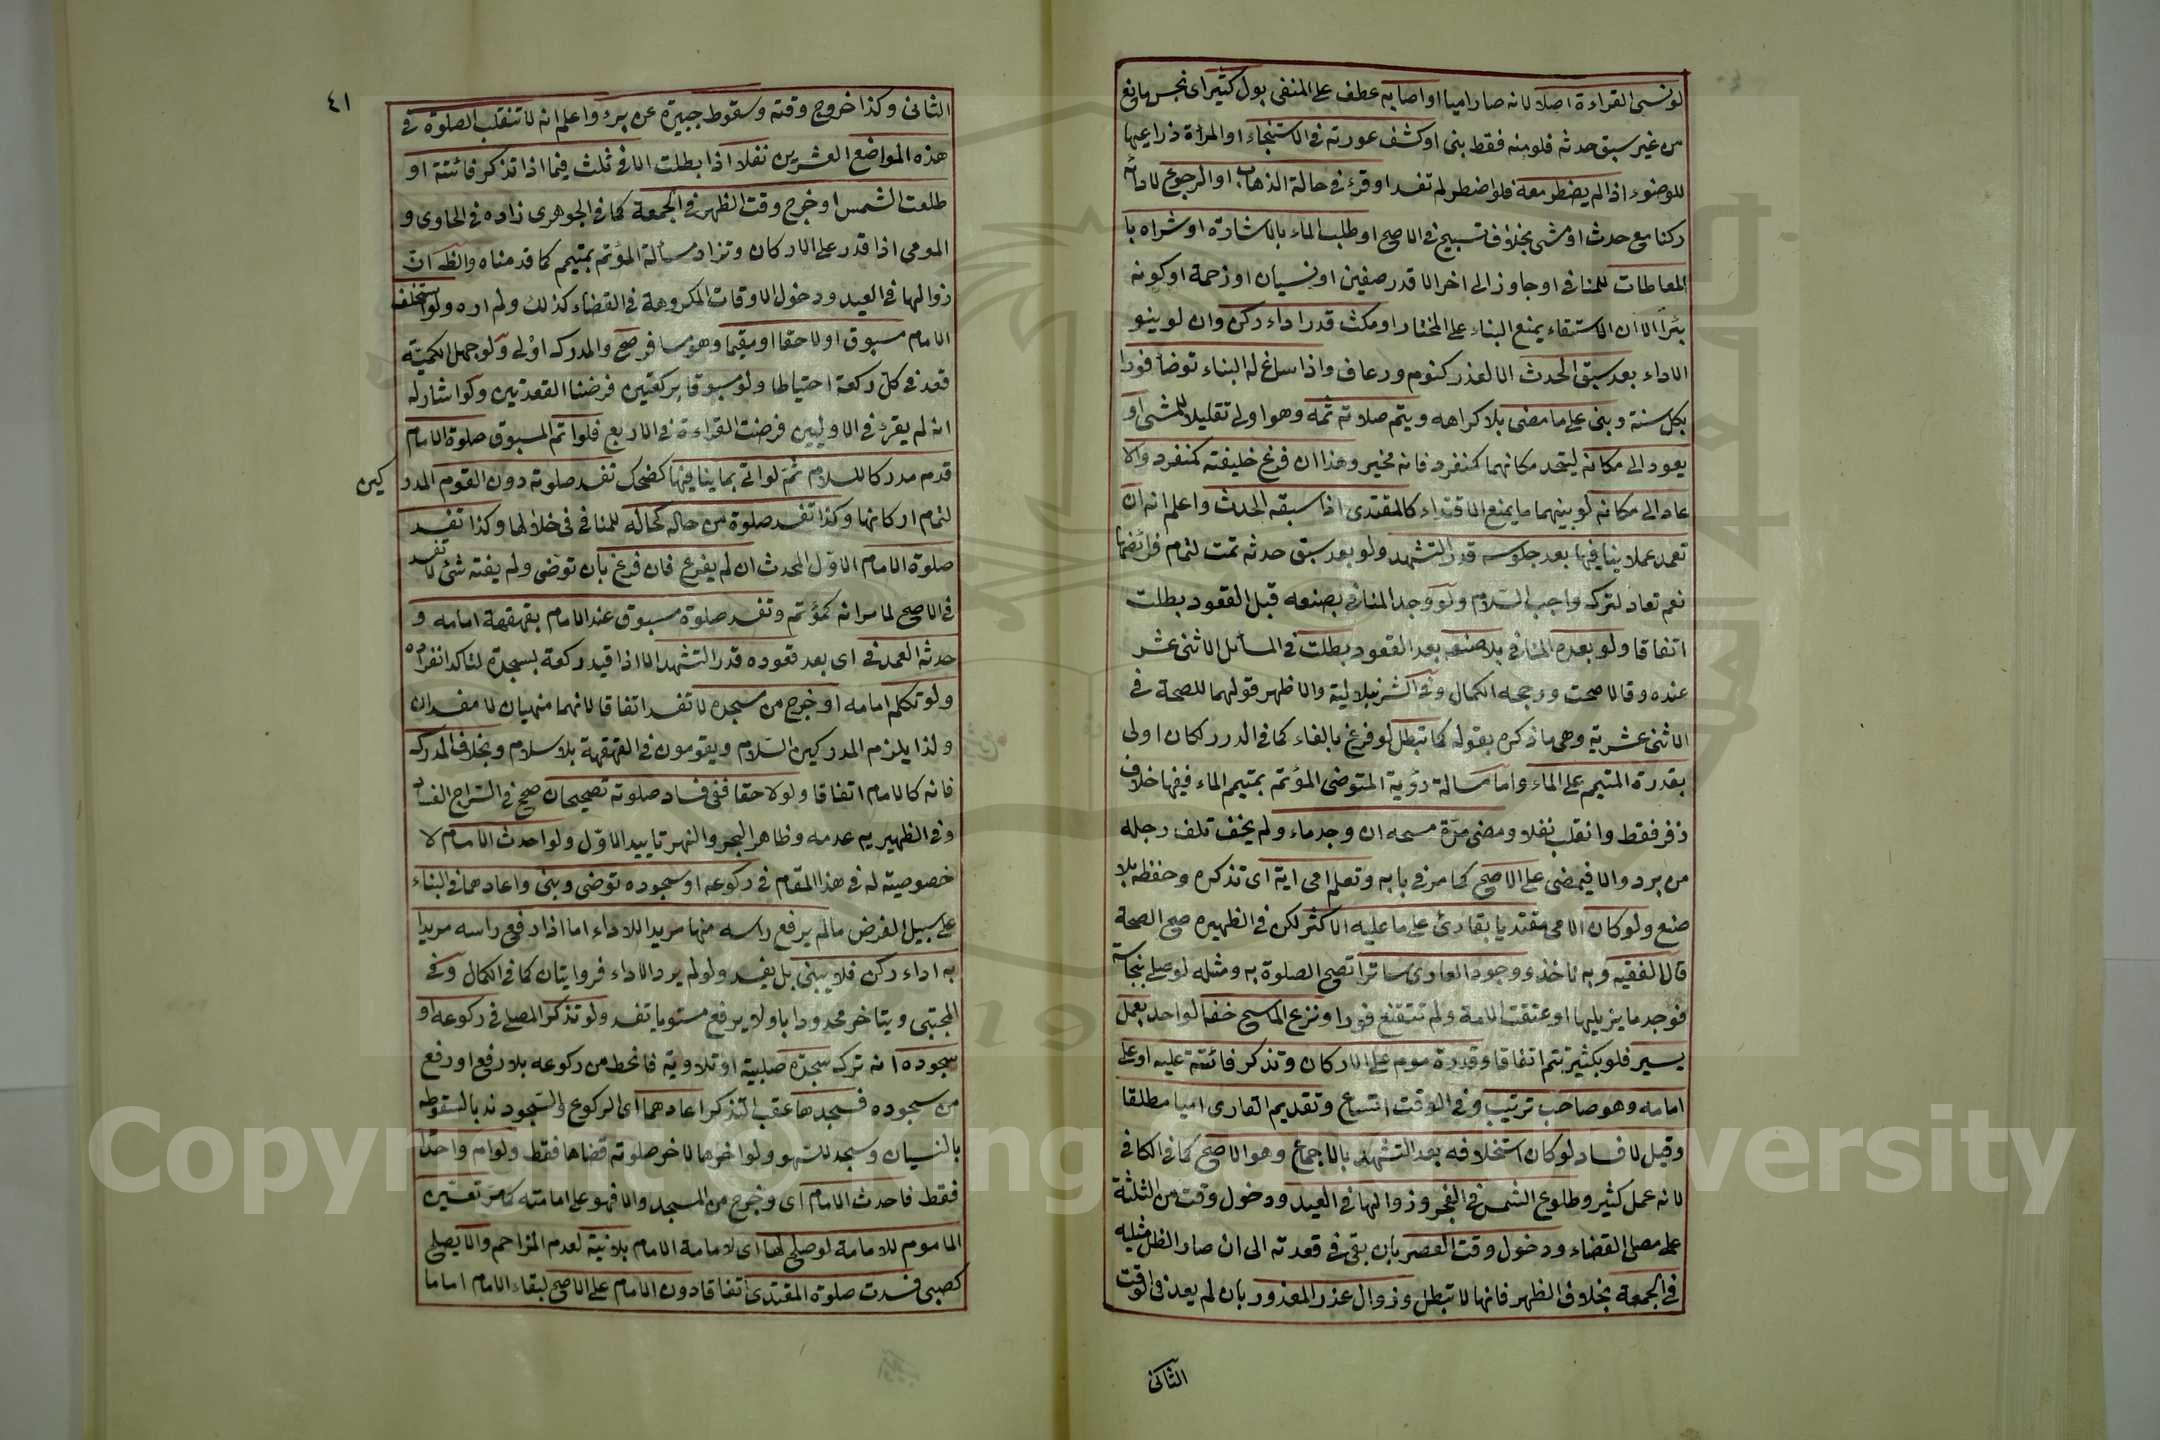 لو نسى القراءة اصلا لانه صار اميا او اصابه عطف على المنفى بول كثير اى نجس مانع
من غير سبق حدثه فلو منه فقط بنى او كشف عورته فى الاستنجاء او المرأة ذراعيها
للوضوء اذا لم يضطر معه فلو اضطر لم تفسد او قرء فى حالة الذهاب او الرجوع لادائه
ركنا مع حدث او مشى بخلاف تسبيح فى الاصح او طلب الماء بالاشارة او شراه با
لمعاطات للمنافى او جاوز الى اخر الا قدر صفين او نسيان او زحمة او كونه
بئرا لان الاستقاء يمنع البناء على المختار او مكث قدر اداء ركن وان لو ينو
الاداء بعد سبق الحدث الا لعذر كنوم ورعاف واذا ساغ له البناء توضأ فورا
بكل سنة وبنى على ما مضى بلا كراهه ويتم صلاته ثمه وهو اولى تقليلا للمشى او
يعود الى مكانه ليتحد مكانهما كمنفرد فانه مخير وهذا ان فرغ خليفته كمنفرد والا
عاد الى مكانه لو بينهما ما يمنع الاقتداء كالمقتدى اذا سبقه الحدث واعلم انه ان
تعمد عملا ينافيها بعد جلوسه قدر التشهد ولو بعد سبق حدثه تمت لتمام فرائضها
نعم تعاد لترك واجب السلام ولو وجد المنافى بصنعه قبل القعود بطلت
اتفاقا ولو بعده المنافى بلا صنعه بعد القعود بطلت فى المسائل الاثنى عشر
عنده وقالا صحت ورجحه الكمال وفى الشرنبلالية والاظهر قولهما للصحة فى
الاثنى عشرية وهى ما ذكره بقوله كما تبطل لو فرغ بالفاء كما فى الدرر لكان اولى
بقدرة المتيمم على الماء واما مسالة رؤية المتوضى المؤتم بمتيمم الماء ففيها خلاف
زفر فقط وانقلب نفلا ومضى مرة مسحه ان وجد ماء ولم يخف تلف رجله
من برد والا فيمضى على الاصح كما مر فى بابه وتعلم امى اية اى تذكره وحفظه بلا
صنع ولو كان الامى مقتديا بقارئ على ما عليه الاكثر لكن فى الظهيره صح الصحة
قال الفقيه وبه ناخذ ووجود العارى ساترا تصح الصلوة به ومثله لو صلى بنجاسة
فوجد ما يزيلها او عتقت الامة ولم تتقنع فورا ونزع الماسح خفه الواحد بعمل
يسير فلو بكثير تتم اتفاقا وقدرة موم على الاركان وتذكر فائتة عليه او على
امامه وهو صاحب ترتيب وفى الوقت اتساع وتقديم القارى اميا مطلقا
وقيل لا فساد لو كان استخلافه بعد التشهد بالاجماع وهو الاصح كما فى الكافى
لانه عمل كثير وطلوع الشمس فى الفجر وزوالها فى العيد ودخول وقت من الثلثة
على مصلى القضاء ودخول وقت العصر بان بقى فى قعدته الى ان صار الظل مثليه
فى الجمعة بخلاف الظهر فانها لا تبطل وزوال عذر المعذور بان لم يعد فى الوقت
الثانى
٤١
الثانى وكذا خروج وقته وسقوط جبيرة عن برء واعلم انه لا تنقلب الصلوة فى
هذه المواضع العشرين نفلا اذا بطلت الا فى ثلث فيما اذا تذكر فائتة او
طلعت الشمس او خرج وقت الظهر فى الجمعة كما فى الجوهرى زاده فى الحاوى و
المومى اذا قدر على الاركان وتزاد مسألة المؤتم بمتيمم كما قدمناه والظ ان
زوالها فى العيد ودخول الاوقات المكروهة فى القضاء كذلك ولم اره ولو استخلف
الامام مسبوق او لاحقا او مقيما وهو مسافر صح والمدرك اولى ولو جهل الكمية
قعد فى كل ركعة احتياطا ولو مسبوقا بركعتين فرضنا القعدتين ولو اشار له
انه لم يقرء فى الاوليين فرضت القراءة فى الاربع فلو اتم المسبوق صلوة الامام
قدم مدركا للسلام ثم لو اتى بما ينافيها كضحك تفسد صلوته دون القوم المدر
كين
لتمام اركانها وكذا تفسد صلوة من حاله كحاله للمنافى فى خلالها وكذا تفسد
صلوة الامام الاول المحدث ان لم يفرغ فان فرغ بان توضى ولم يفته شئ لا تفسد
فى الاصح لما مر انه كمؤتم وتفسد صلوة مسبوق عند الامام بقهقهة امامه و
حدثه العمد فى اى بعد قعوده قدر التشهد الا اذا قيد ركعة بسجدة لتاكد انفراده
ولو تكلم امامه او خرج من مسجده لا تفسد اتفاقا لانهما منهيان لا مفسدان
ولذا يلزم المدركين السلام ويقومون فى القهقهة بلا سلام وبخلاف المدرك
فانه كالامام اتفاقا ولو لاحقا ففى فساد صلوته تصحيحان صحح فى السراج الفساد
وفى الظهيريه عدمه وظاهر البحر والنهر تاييد الاول ولو احدث الامام لا
خصوصية له فى هذا المقام فى ركوعه او سجوده توضى وبنى واعادهما فى البناء
على سبيل الفرض مالم يرفع راسه منها مريدا للاداء اما اذا رفع راسه مريدا
به اداء ركن فلا يبنى بل يفسد ولو لم يرد الاداء فروايتان كما فى الكمال وفى
المجتبى ويتاخر محدودبا ولا يرفع مستويا تفسد ولو تذكر المصلى فى ركوعه او
سجوده انه ترك سجدة صلبية او تلاوية فانحط من ركوعه بلا رفع او رفع
من سجوده فسجدها عقب التذكر اعادهما اى الركوع والسجود ندبا لسقوطه
بالنسيان وسجد للسهو ولو اخرها لاخر صلوته قضاها فقط ولو ام واحدا
فقط فاحدث الامام اى وخرج من المسجد والا فهو على امامته كما مر تعين
الماموم للامامة لو صلح لها اى لامامة الامام بلا نية لعدم المزاحم والا يصلح
كصبى فسدت صلوة المقتدى اتفاقا دون الامام على الاصح لبقاء الامام اماما
Copyright © King Saud University